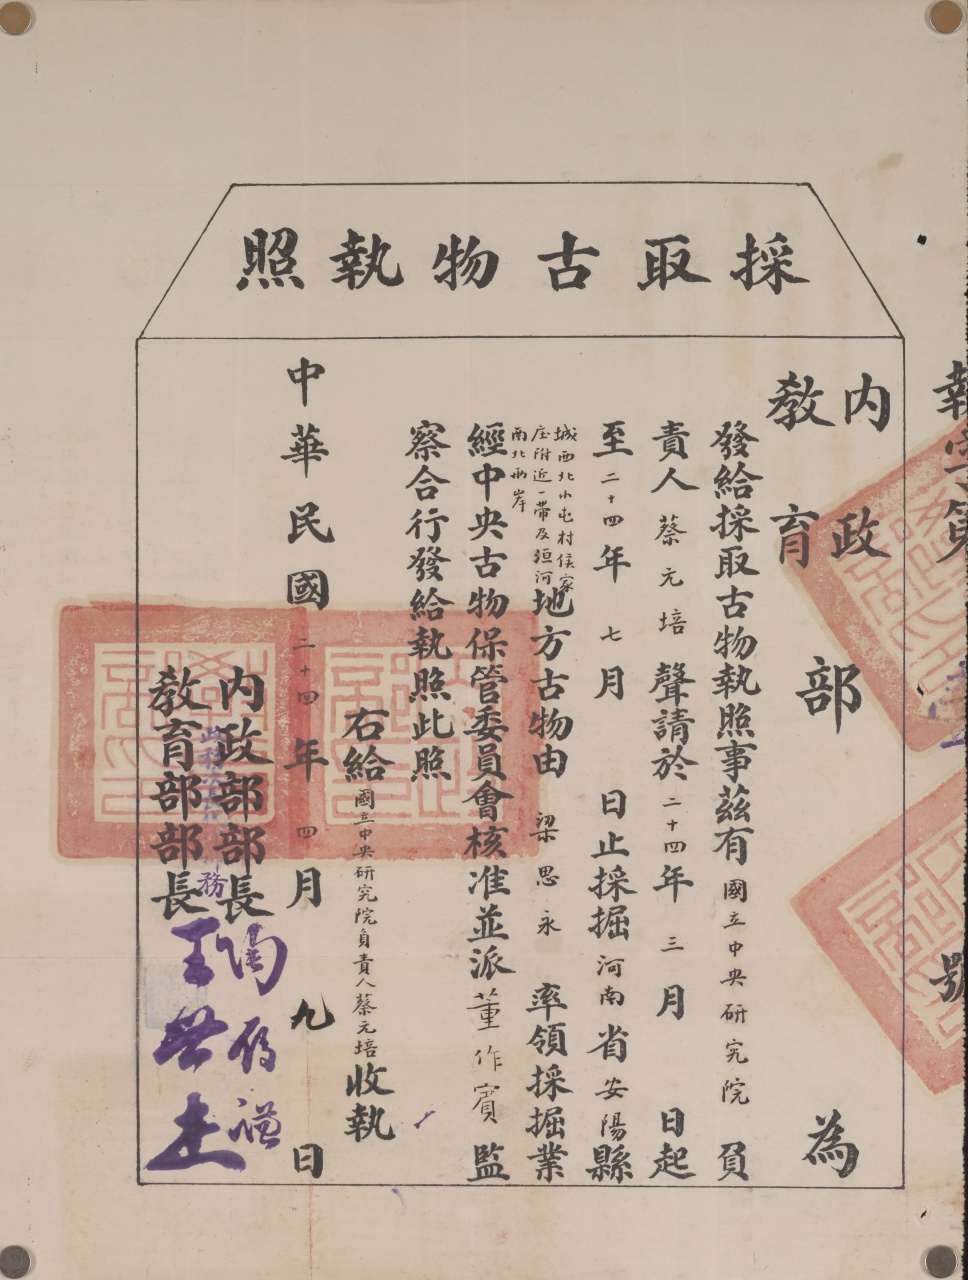 採取古物執照
內政
教育
部
為
發給採取古物執照事茲有國立中央研究院負
責人蔡元培聲請於二十四年三月 日起
至二十四年七月 日止採掘河南省安陽縣
城西北小屯村侯家
庄附近一帶及洹河
南北兩岸
地方古物由梁思永率領採掘業
經中央古物保管委員會核准並派董作賓監
察合行發給執照此照
右給國立中央研究院負責人蔡元培收執
中華民國二十四年四月九日
內政部部長
教育部部長王世杰
號